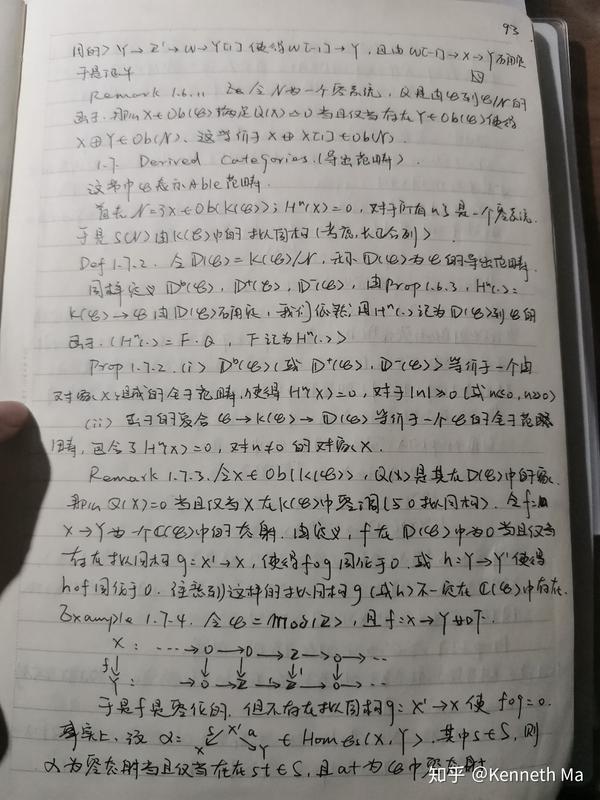 93
Y→Z'→W→Y[1] 使得 W[-1]→Y, 且由 W[-1]→X→Y
Remark 1.6.11 令N为一个零系统, Q是由𝒞到𝒞/N的
函子. 那么 X∈Ob(𝒞) 满足 Q(X)≃0 当且仅当存在 Y∈Ob(𝒞) 使得
X⊕Y∈Ob(N), 这等价于 X⊕X[1]∈Ob(N).
1.7 Derived Categories. (导出范畴)
这节中𝒞表示Able范畴.
首先 N={X∈Ob(K(𝒞)); Hⁿ(X)=0, 对于所有n} 是一个零系统.
于是 S(N) 由 K(𝒞) 中的拟同构 (考虑长正合列)
Def 1.7.2. 令 D(𝒞)=K(𝒞)/N, 表示 D(𝒞) 为𝒞的导出范畴.
同样定义 Dᵇ(𝒞), D⁺(𝒞), D⁻(𝒞), 由 Prop 1.6.3, Hⁿ(.):
K(𝒞)→𝒞 由 D(𝒞) 我们依然用 Hⁿ(.) 记为 D(𝒞) 到𝒞的
函子. (Hⁿ(.)=F·Q, F记为Hⁿ(.))
Prop 1.7.2 (i) Dᵇ(𝒞) (或 D⁺(𝒞), D⁻(𝒞)) 等价于一个由
对象X组成的全子范畴, 使得 Hⁿ(X)=0, 对于 |n|≫0 (或 n≪0, n≫0)
(ii) 函子的复合 𝒞→K(𝒞)→D(𝒞) 等价于一个𝒞的全子范畴
包含了 Hⁿ(X)=0, 对n≠0 的对象X.
Remark 1.7.3. 令 X∈Ob(K(𝒞)), Q(X) 是其在 D(𝒞) 中的象.
那么 Q(X)=0 当且仅当 X 在 K(𝒞) 中零调 (与0拟同构). 令 f:
X→Y 为一个 C(𝒞) 中的态射. 由定义, f 在 D(𝒞) 中为0当且仅当
存在拟同构 g: X'→X, 使得 f∘g 同伦于0. 或 h: Y→Y' 使得
h∘f 同伦于0. 注意到这样的拟同构g (或h) 不一定在 C(𝒞) 中存在.
Example 1.7.4. 令 𝒞=Mod(Z), 且 f: X→Y 如下.
X: ···→0→0→Z→0→···
f↓ ↓ ↓ ↓ ↓
Y: →0→Z→Z→0→···
于是f是零伦的, 但不存在拟同构 g: X'→X 使 f∘g=0.
事实上, 设 α: X X' a Y ∈ Hom(X,Y). 其中 s∈S, 则
α为零态射当且仅当存在 st∈S, 且 at 为𝒞中零态射
知乎 @Kenneth Ma